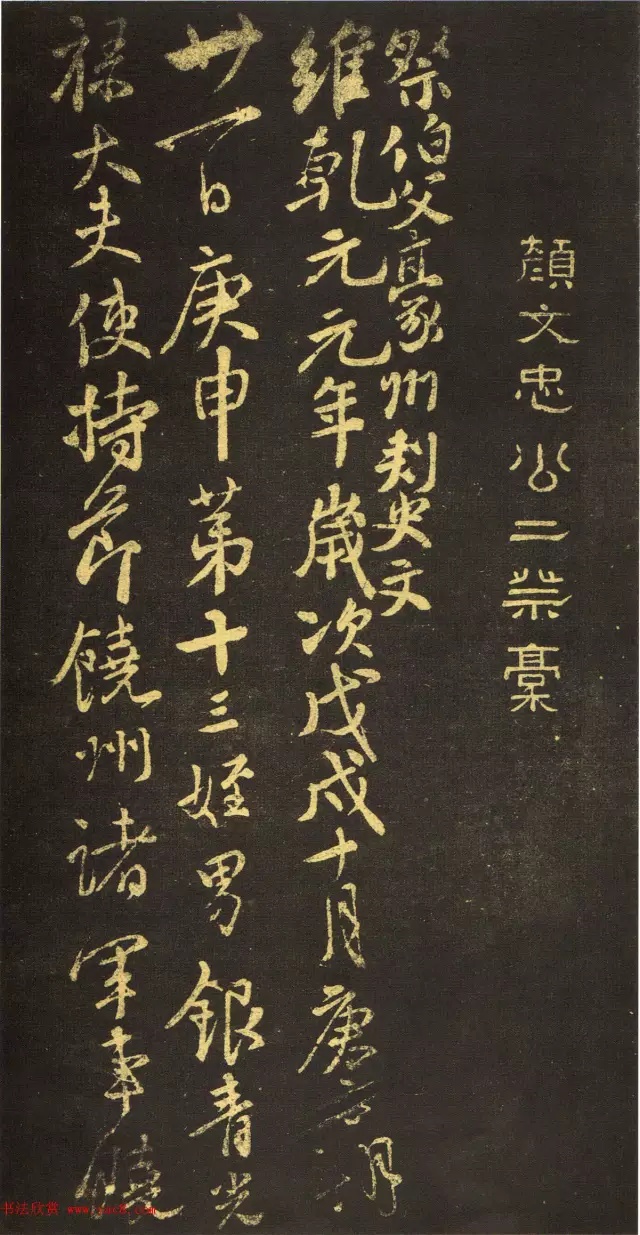 顔文忠公二祭稾
祭伯父豪州刾史文
維乾元元年歲次戊戌十月庚寅朔
廿一日庚申苐十三姪男銀青光
祿大夫使持節饒州諸軍事饒
书法欣赏